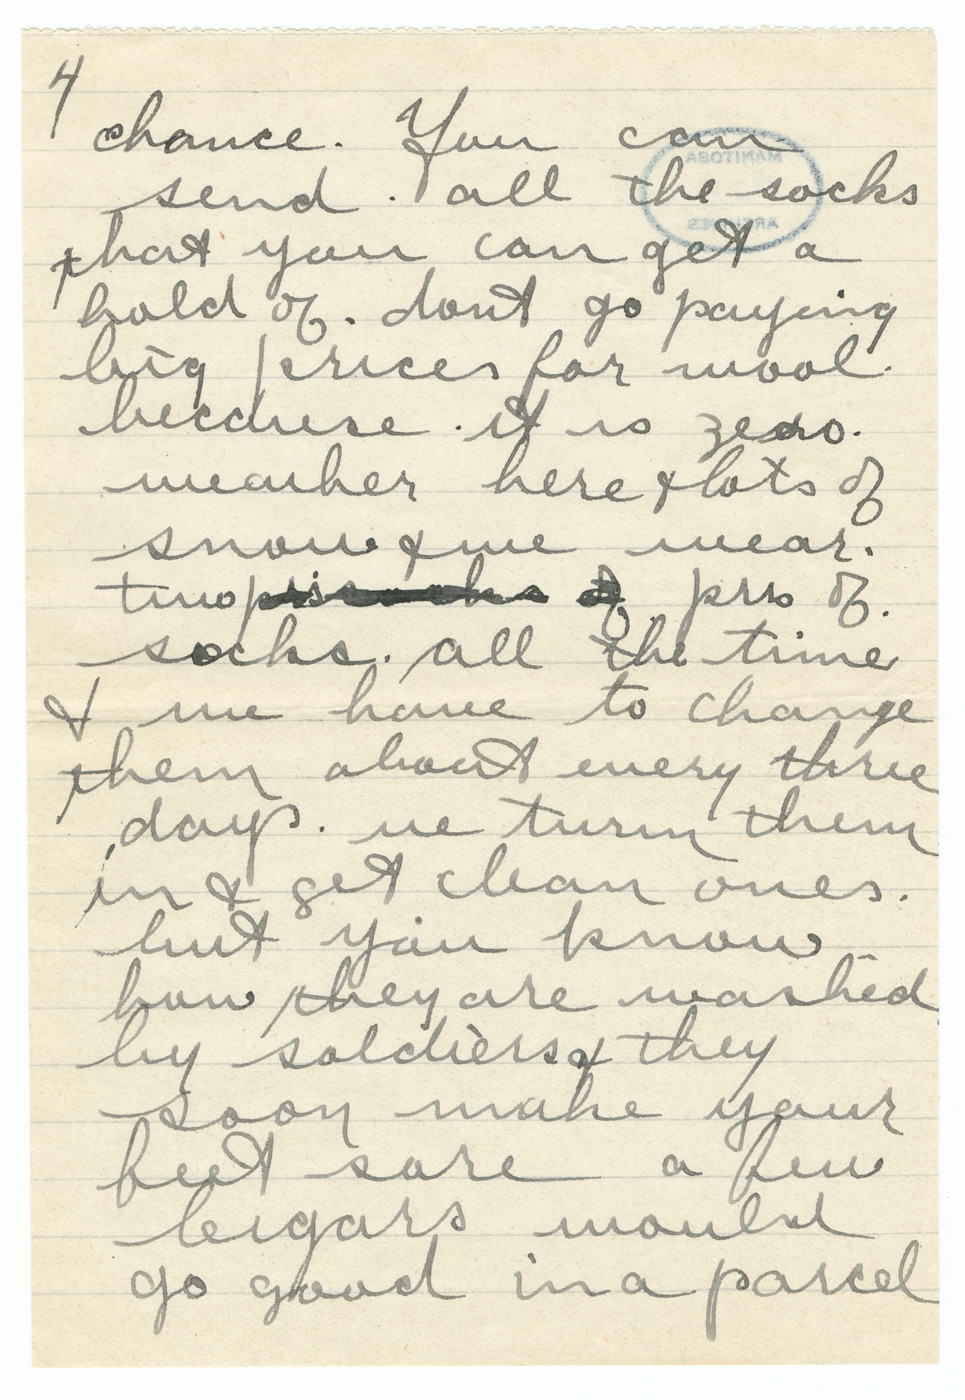 4
chance. You can
send. all the socks
that you can get a
hold of. dont go paying
big prices for wool.
because. it is zero.
weather here & lots of
snow & we wear.
two prs of.
socks. all the time
& we have to change
them about every three
days. we turn them
in & get clean ones.
but you know
how they are washed
by soldiers & they
soon make your
feet sore a few
cigars would
go good in a parcel
MANITOBA
ARCHIVES